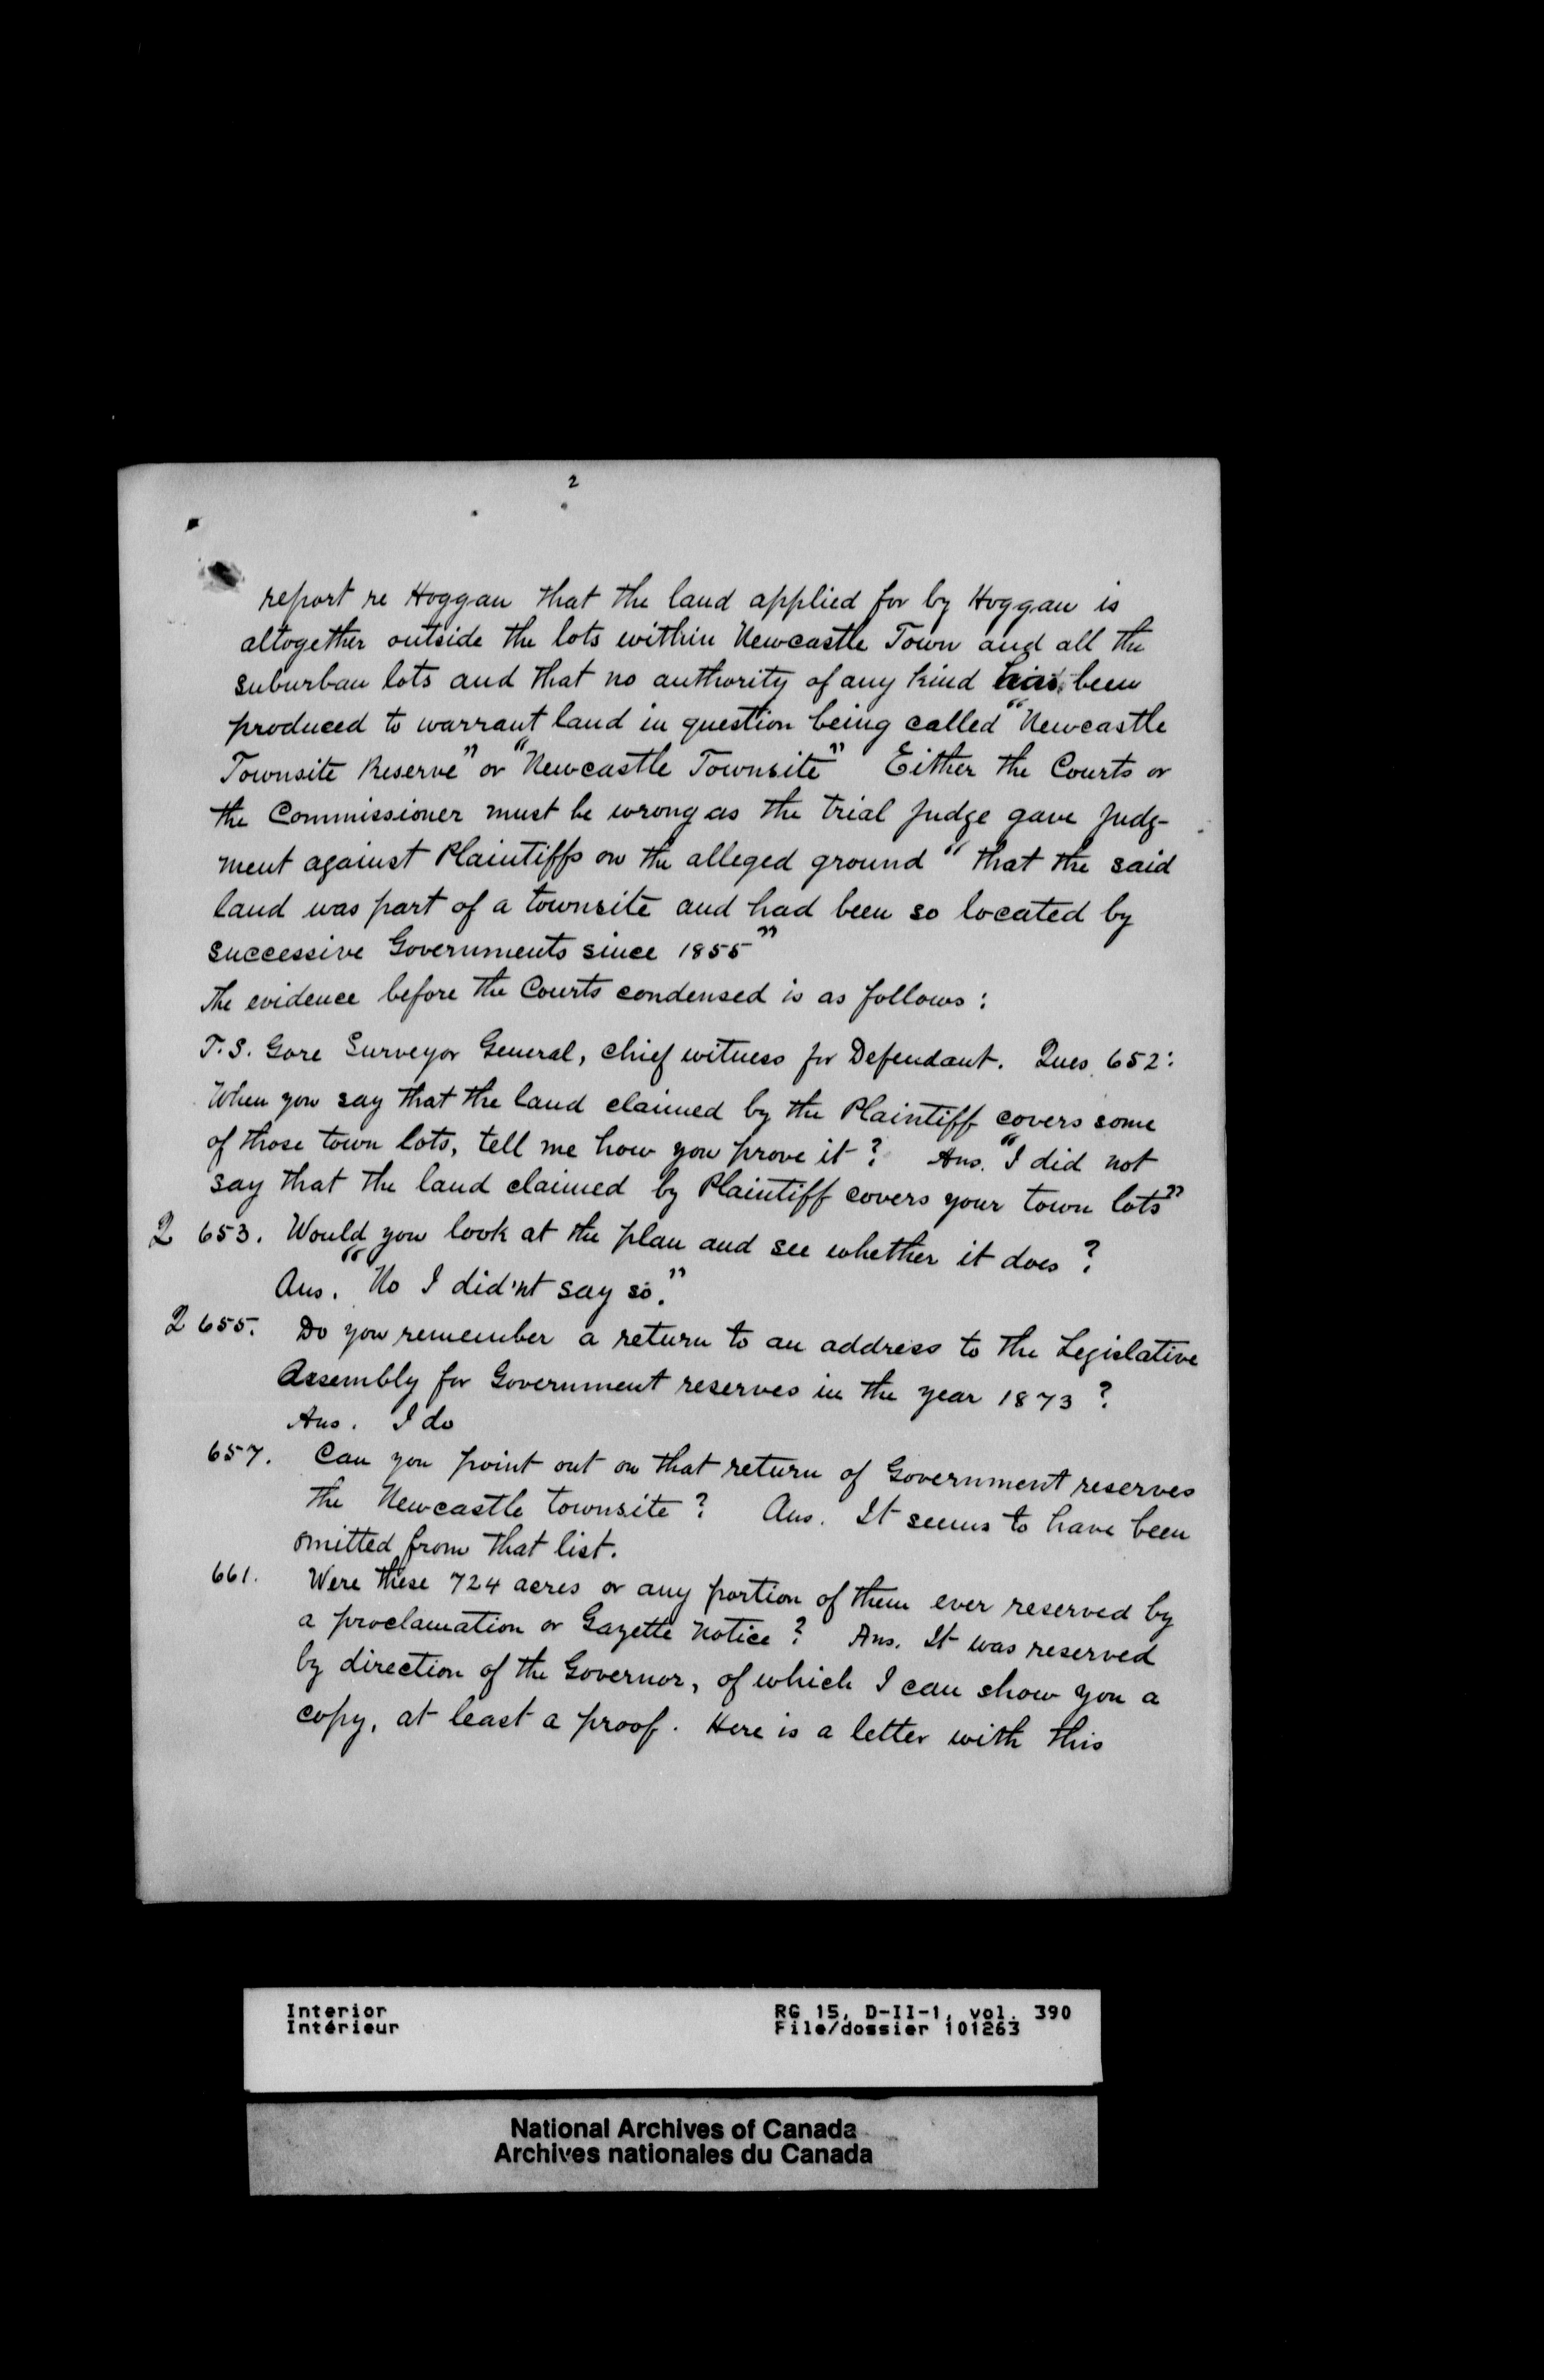 2
report re Hoggan that the land applied for by Hoggan is
altogether outside the lots within Newcastle Town and all the
suburban lots and that no authority of any kind has been
produced to warrant land in question being called "Newcastle
Townsite Reserve" or "Newcastle Townsite" Either the Courts or
the Commissioner must be wrong as the trial judge gave judg-
ment against Plaintiffs on the alleged ground "that the said
land was part of a townsite and had been so located by
successive Governments since 1855"
The evidence before the Courts condensed is as follows:
T.S. Gore Surveyor General, chief witness for Defendant. Ques. 652:
When you say that the land claimed by the Plaintiff covers some
of those town lots, tell me how you prove it? Ans. "I did not
say that the land claimed by Plaintiff covers your town lots"
Q 653. Would you look at the plan and see whether it does?
Ans. "No I did'nt say so."
Q 655. Do you remember a return to an address to the Legislative
Assembly for Government reserves in the year 1873?
Ans. I do
657. Can you point out on that return of Government reserves
the Newcastle townsite? Ans. It seems to have been
omitted from that list.
661. Were these 724 acres or any portion of them ever reserved by
a proclamation or Gazette notice? Ans. It was reserved
by direction of the Governor, of which I can show you a
copy, at least a proof. Here is a letter with this
Interior
Intérieur
RG 15, D-II-1, vol. 390
File/dossier 101263
National Archives of Canada
Archives nationales du Canada